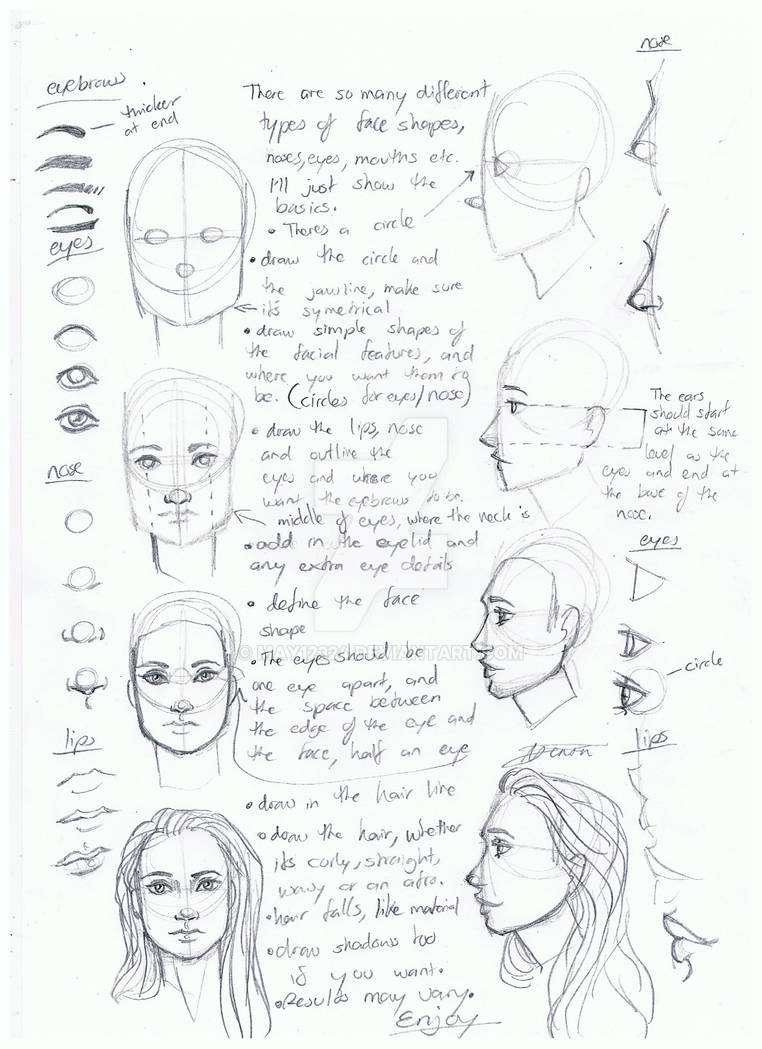 eyebrows.
thicker
at end
eyes
nose
lips
There are so many different
types of face shapes,
noses, eyes, mouths etc.
I'll just show the
basics.
• Theres a circle
• draw the circle and
the jawline, make sure
its symetrical
• draw simple shapes of
the facial features, and
where you want them to
be. (circles for eyes/nose)
• draw the lips, nose
and outline the
eyes and where you
want the eyebrows to be.
middle of eyes, where the neck is
• add in the eyelid and
any extra eye details
• define the face
shape
• The eyes should be
one eye apart, and
the space between
the edge of the eye and
the face, half an eye
• draw in the hair line
• draw the hair, whether
its curly, straight,
wavy or an afro.
• hair falls, like material
• draw shadows too
if you want.
• Results may vary.
Enjoy
nose
The ears
should start
at the same
level as the
eyes and end at
the base of the
nose.
eyes
circle
lips
DEVIANTART.COM